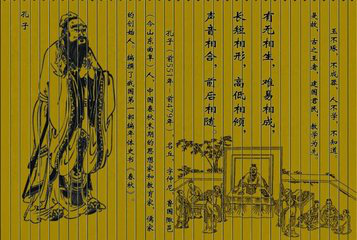 玉不琢，不成器。人不学，不知道
是故，古之王者，建国君民，教学为先。
有无相生，难易相成，
长短相形，高低相倾，
声音相合，前后相随。
孔子（前551年－前479年），名丘，字仲尼，鲁国陬邑
（今山东曲阜）人，中国春秋末期的思想家和教育家，儒家
的创始人，编撰了我国第一部编年体史书《春秋》。
孔子